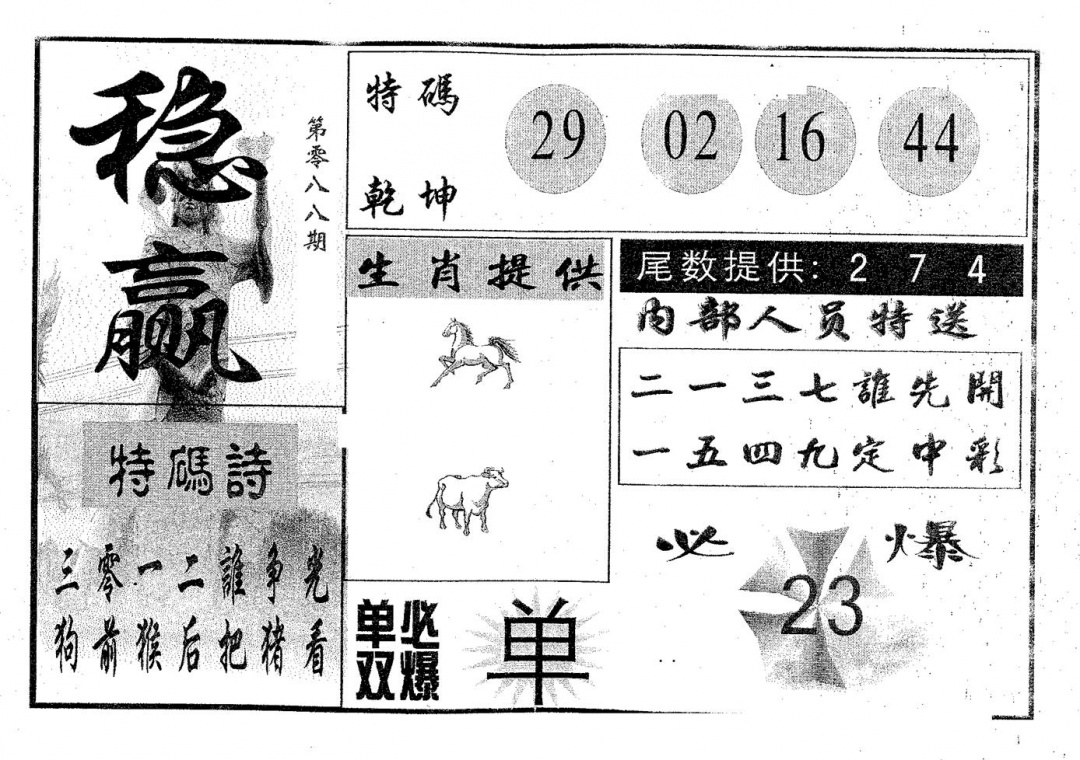 稳赢
第零八八期
特碼詩
三零一二誰争光
狗前猴后把猪看
特碼
乾坤
29 02 16 44
生肖提供
单双
必爆
单
尾数提供：2 7 4
内部人员特送
二一三七誰先開
一五四九定中彩
必 23 爆